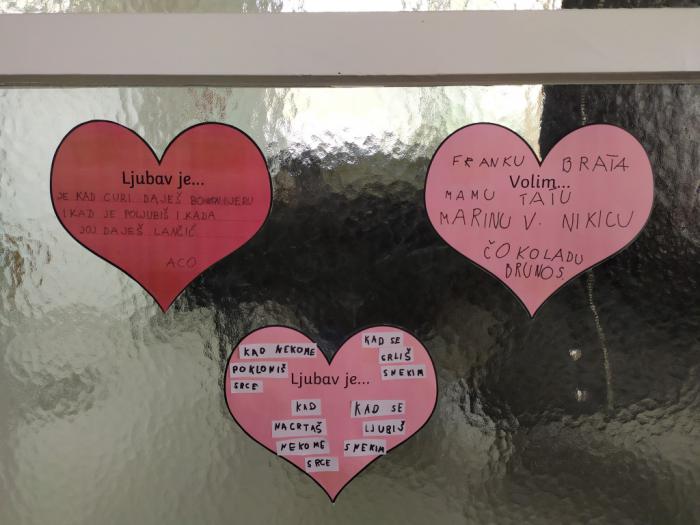 Ljubav je...
JE KAD CURI DAJEŠ BOMBONIJERU
I KAD JE POLJUBIŠ I KADA
JOJ DAJEŠ LANČIĆ
ACO
FRANKU BRATA
Volim...
MAMU TATU
MARINU V. NIKICU
ČOKOLADU
BRUNO S.
KAD NEKOME
POKLONIŠ
SRCE
KAD SE
GRLIŠ
SNEKIM
Ljubav je...
KAD
NACRTAŠ
NEKOME
SRCE
KAD SE
LJUBIŠ
SNEKIM